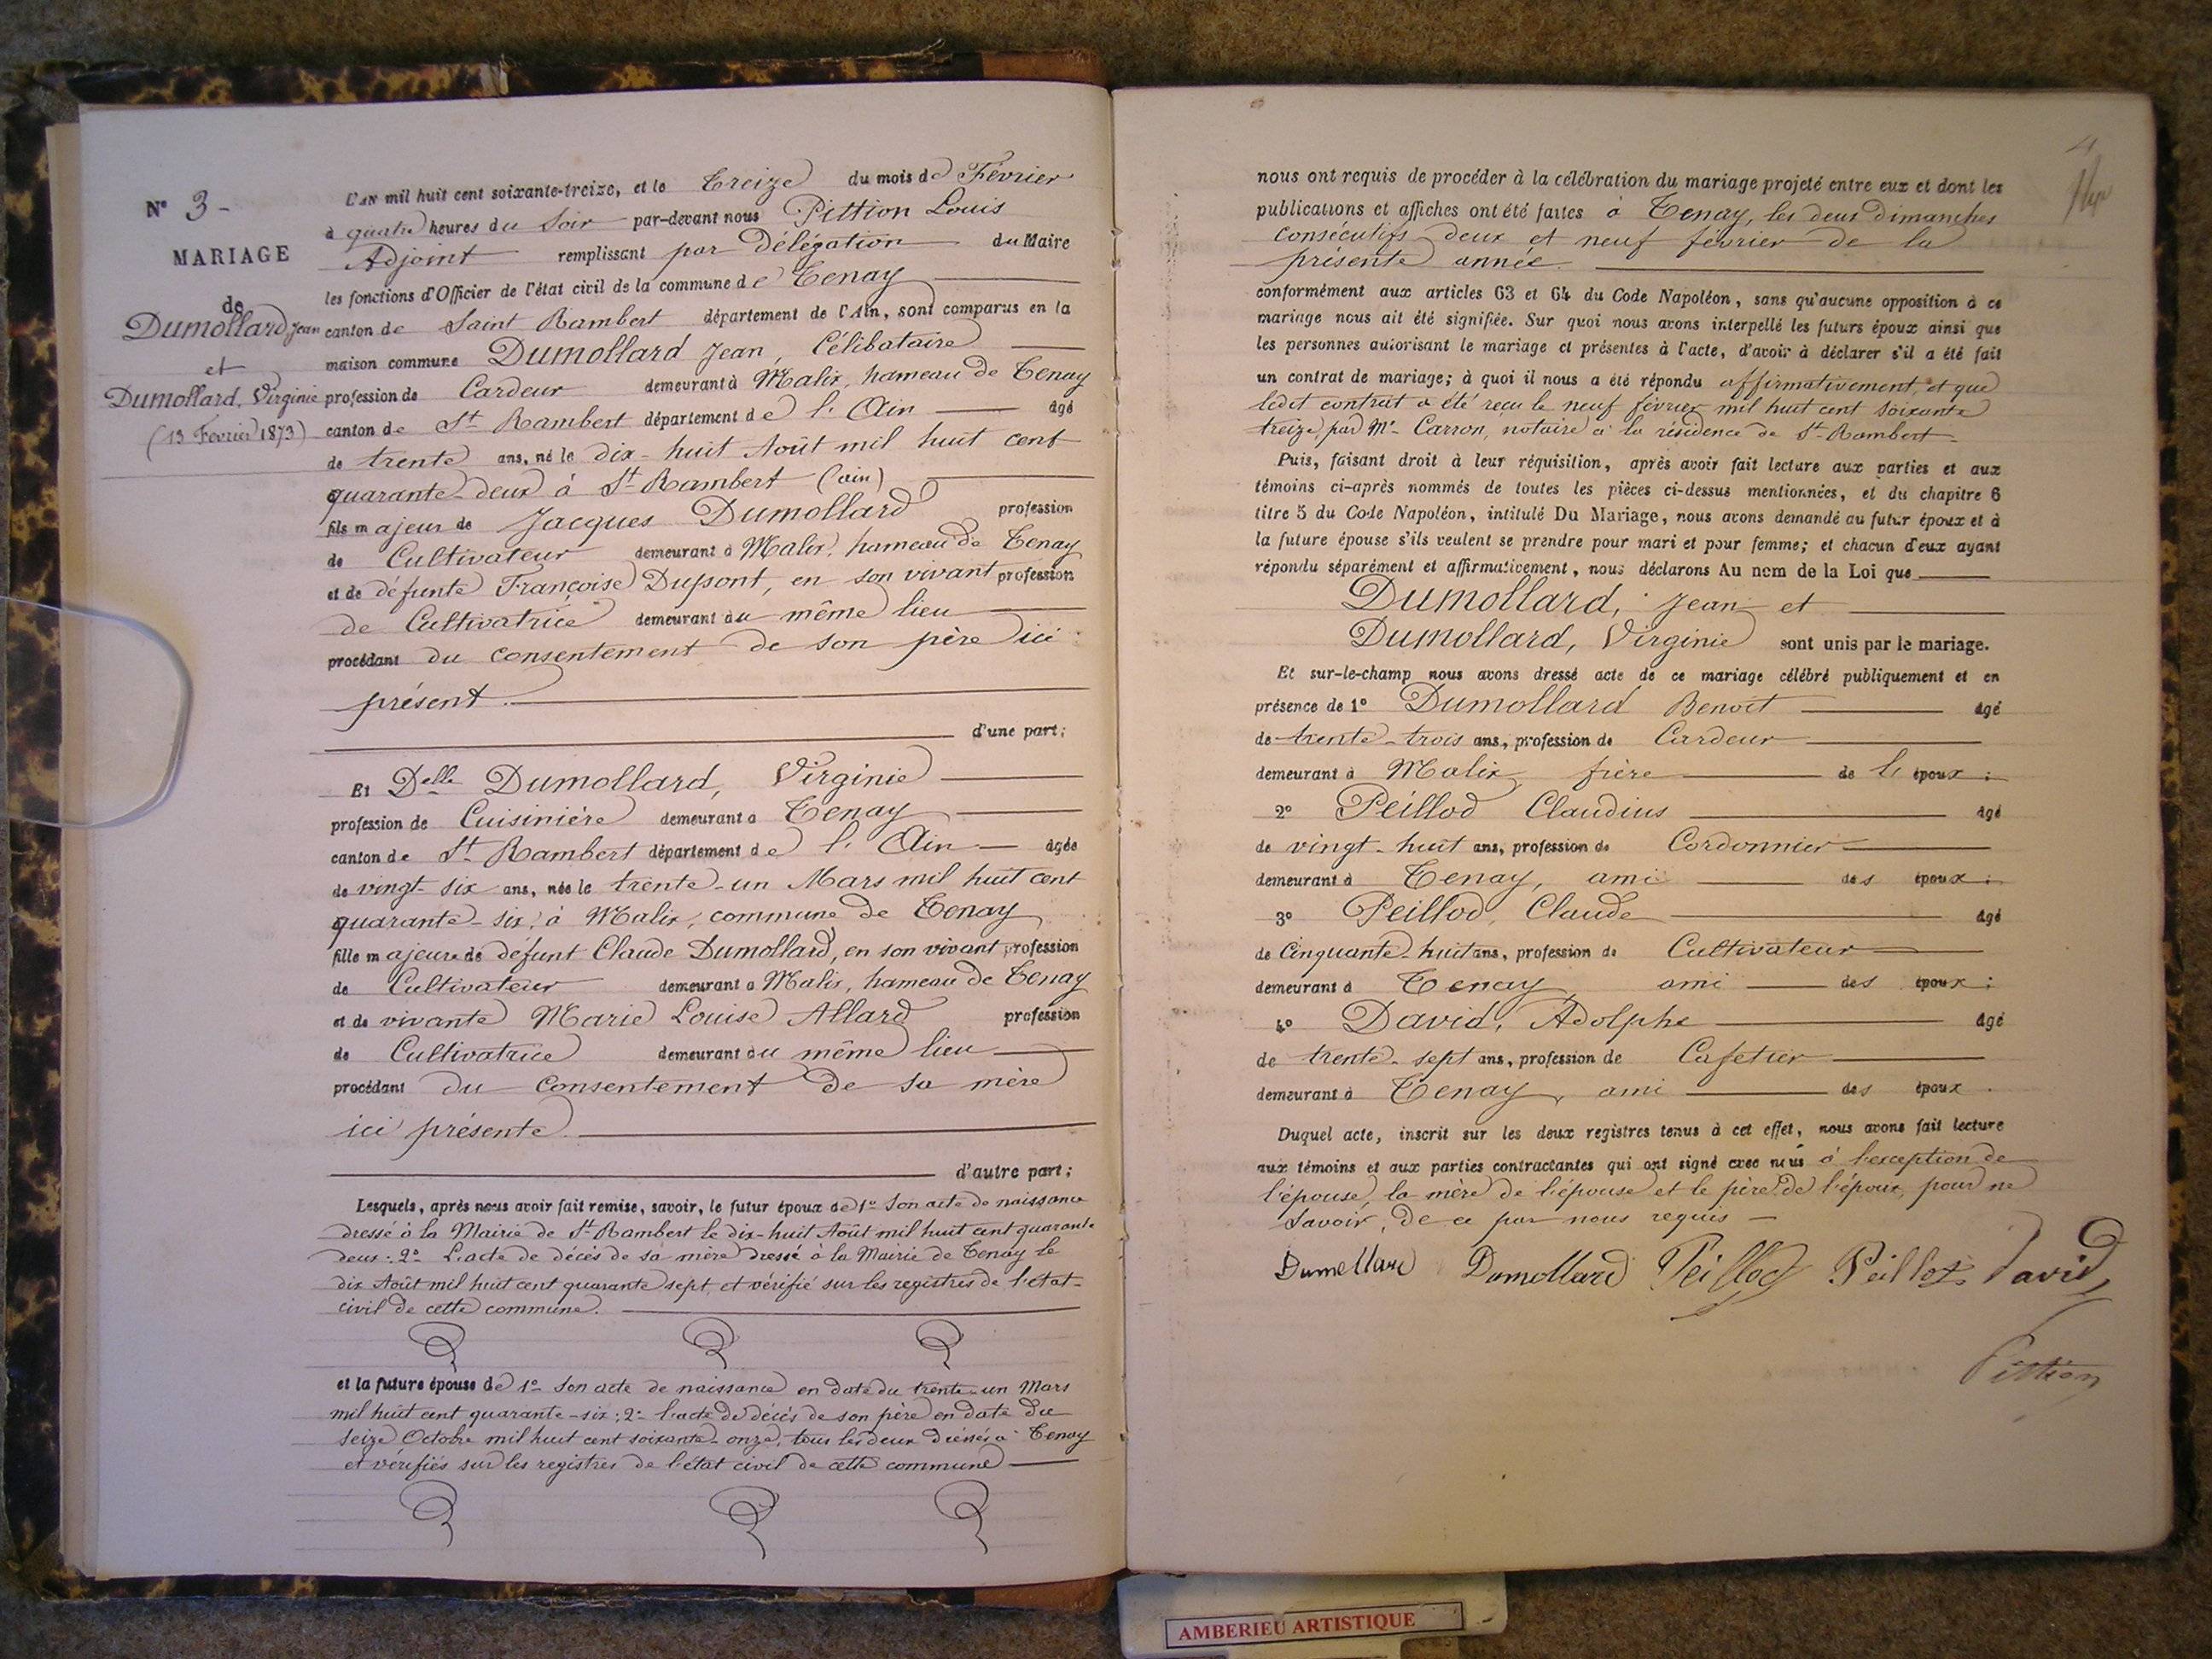 N° 3 -
MARIAGE
de
Dumollard Jean
et
Dumollard, Virginie
(13 Février 1873)
L'AN mil huit cent soixante-treize, et le Treize du mois de Février
à quatre heures du Soir par-devant nous Pittion Louis
Adjoint remplissant par Délégation du Maire
les fonctions d'Officier de l'état civil de la commune de Tenay
canton de Saint Rambert département de l'Ain, sont comparus en la
maison commune Dumollard Jean, Célibataire
profession de Cardeur demeurant à Malix, hameau de Tenay
canton de St Rambert département de l'Ain âgé
de trente ans, né le dix-huit Août mil huit cent
quarante-deux à St Rambert (ain)
fils majeur de Jacques Dumollard profession
de Cultivateur demeurant à Malix, hameau de Tenay
et de défunte Françoise Dupont, en son vivant profession
de Cultivatrice demeurant au même lieu
procédant du consentement de son père ici
présent.
d'une part;
Et Delle Dumollard, Virginie
profession de Cuisinière demeurant à Tenay
canton de St Rambert département de l'Ain âgée
de vingt-six ans, née le trente-un Mars mil huit cent
quarante-six, à Malix, commune de Tenay
fille majeure de défunt Claude Dumollard, en son vivant profession
de Cultivateur demeurant à Malix, hameau de Tenay
et de vivante Marie Louise Allard profession
de Cultivatrice demeurant au même lieu
procédant du consentement de sa mère
ici présente.
d'autre part;
Lesquels, après nous avoir fait remise, savoir, le futur époux de 1° Son acte de naissance
dressé à la Mairie de St Rambert le dix-huit Août mil huit cent quarante
deux: 2° L'acte de décès de sa mère dressé à la Mairie de Tenay le
dix Août mil huit cent quarante sept, et vérifié sur les registres de l'état-
civil de cette commune.
et la future épouse de 1° Son acte de naissance en date du trente-un Mars
mil huit cent quarante-six; 2° l'acte de décès de son père en date du
seize Octobre mil huit cent soixante-onze, tous les deux dressés à Tenay
et vérifiés sur les registres de l'état civil de cette commune
nous ont requis de procéder à la célébration du mariage projeté entre eux et dont les
publications et affiches ont été faites à Tenay, les deux dimanches
consécutifs deux et neuf février de la
présente année.
conformément aux articles 63 et 64 du Code Napoléon, sans qu'aucune opposition à ce
mariage nous ait été signifiée. Sur quoi nous avons interpellé les futurs époux ainsi que
les personnes autorisant le mariage et présentes à l'acte, d'avoir à déclarer s'il a été fait
un contrat de mariage; à quoi il nous a été répondu affirmativement, et que
ledit contrat a été reçu le neuf février mil huit cent soixante
treize, par Me Carron, notaire à la résidence de St-Rambert.
Puis, faisant droit à leur réquisition, après avoir fait lecture aux parties et aux
témoins ci-après nommés de toutes les pièces ci-dessus mentionnées, et du chapitre 6
titre 5 du Code Napoléon, intitulé Du Mariage, nous avons demandé au futur époux et à
la future épouse s'ils veulent se prendre pour mari et pour femme; et chacun d'eux ayant
répondu séparément et affirmativement, nous déclarons Au nom de la Loi que
Dumollard, Jean et
Dumollard, Virginie sont unis par le mariage.
Et sur-le-champ nous avons dressé acte de ce mariage célébré publiquement et en
présence de 1° Dumollard Benoit âgé
de trente-trois ans, profession de Cardeur
demeurant à Malix, frère de l' époux;
2° Peillod Claudius âgé
de vingt-huit ans, profession de Cordonnier
demeurant à Tenay, ami des époux;
3° Peillod, Claude âgé
de Cinquante-huit ans, profession de Cultivateur
demeurant à Tenay, ami des époux;
4° David, Adolphe âgé
de trente-sept ans, profession de Cafetier
demeurant à Tenay, ami des époux.
Duquel acte, inscrit sur les deux registres tenus à cet effet, nous avons fait lecture
aux témoins et aux parties contractantes qui ont signé avec nous à l'exception de
l'épouse, la mère de l'épouse et le père de l'époux, pour ne
savoir, de ce par nous requis
Dumollard Dumollard Peillod Peillod David
Pittion
AMBERIEU ARTISTIQUE